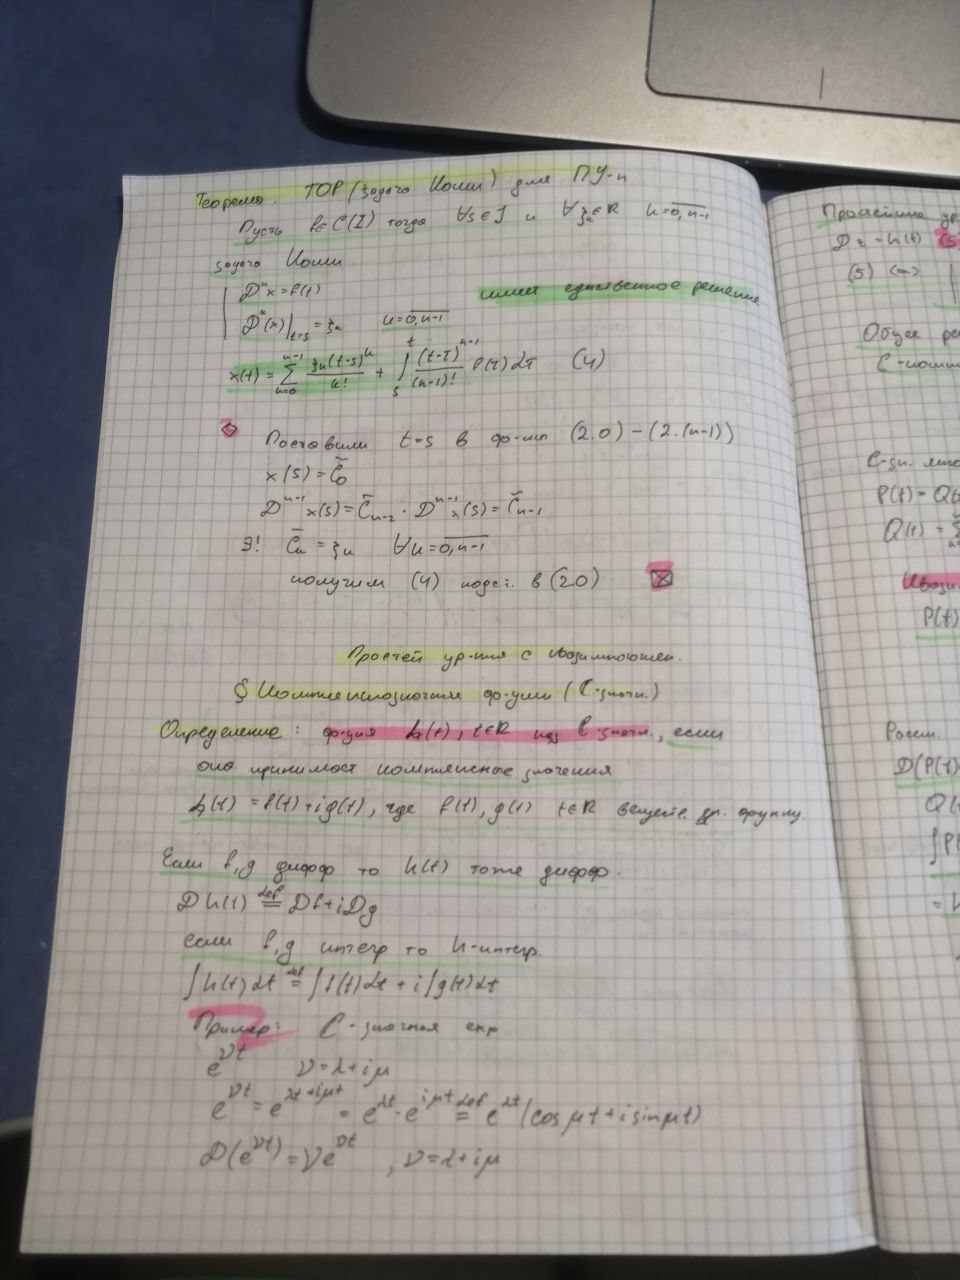 Теорема. ТОР (задача Коши) для ПУ-n
Пусть f∈C(I) тогда ∀s∈J и ∀ξₖ∈R k=0,n-1
задача Коши
Dⁿx=f(t)
имеет единственное решение
Dᵏ(x)|t=s = ξₖ k=0,n-1
x(t) = Σₖ₌₀ⁿ⁻¹ ξₖ(t-s)ᵏ/k! + ∫ₛᵗ (t-τ)ⁿ⁻¹/(n-1)! f(τ)dτ (4)
Поставили t=s в ф-лы (2.0) - (2.(n-1))
x(s) = C̃₀
Dⁿ⁻¹x(s) = C̃ₙ₋₂ · Dⁿ⁻¹x(s) = C̃ₙ₋₁
∃! C̃ₖ = ξₖ ∀k=0,n-1
получим (4) подст. в (2.0)
Простей ур-ния с квазимногочлен.
§ Комплекснозначные ф-ции (C-значн.)
Определение: ф-ция h(t), t∈R наз C-значн., если
она принимает комплексные значения
h(t) = f(t)+ig(t), где f(t), g(t) t∈R веществ. зн. функц.
Если f,g дифф то h(t) тоже дифф.
Dh(t) def= Df+iDg
если f,g интегр то h-интегр.
∫h(t)dt def= ∫f(t)dt + i∫g(t)dt
Пример: C-значная exp
e^νt ν=λ+iμ
e^νt = e^λt+iμt = e^λt · e^iμt def= e^λt(cosμt+isinμt)
D(e^νt) = νe^νt , ν=λ+iμ
Простейшие ур
(5)
(5) <=>
Общее ре
P(t) = Q(
Q(t) = Σ
Квази
P(t)
Рассм.
D(P(t)
Q(
∫P(